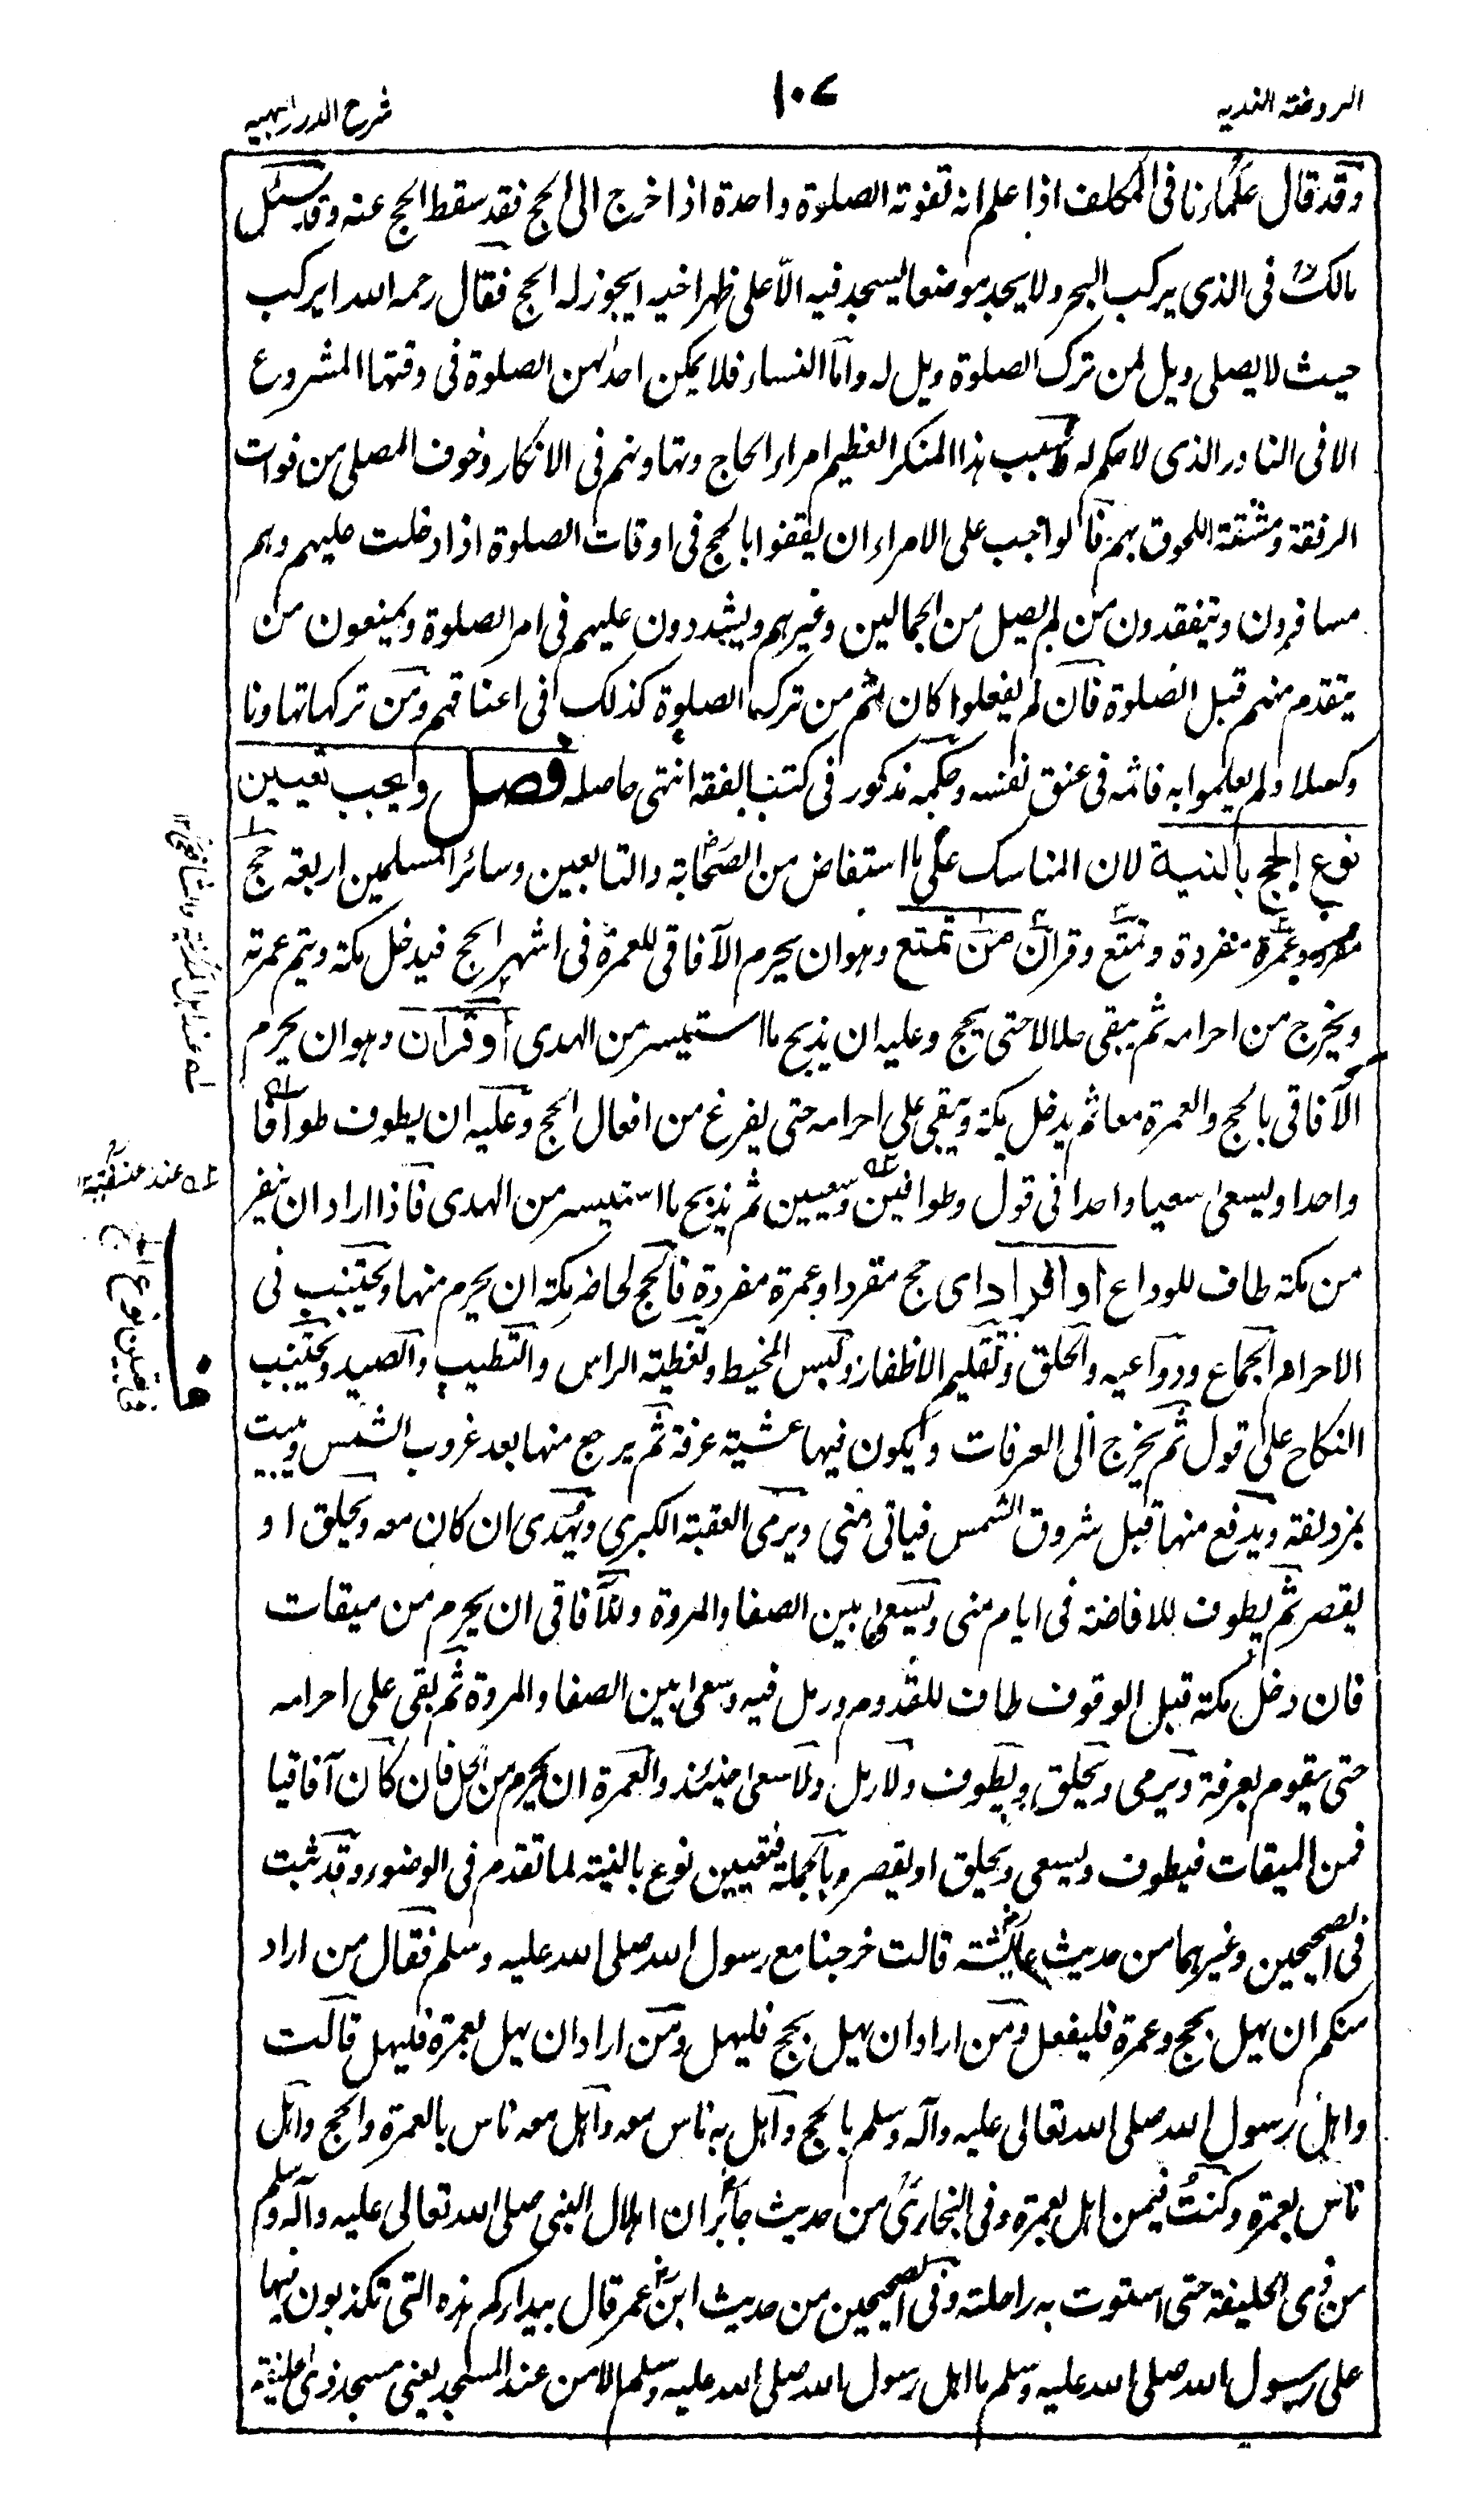 الروضة الندیہ
١٠٧
شرح الدرر البہیہ
وقد قال علماؤنا فی المکلف اذا علم انہ تفوتہ الصلوة واحدة اذا خرج الی الحج فقد سقط الحج عنہ وقد سئل
مالکؒ فی الذی یرکب البحر ولا یجد موضعا یسجد فیہ الّا علی ظہر اخیہ ایجوز لہ الحج فقال رحمہ اللہ ایرکب
حیث لا یصلی ویل لمن ترک الصلوة ویل لہ واما النساء فلا یمکن احدٰہن الصلوة فی وقتہا المشروع
الا فی النادر الذی لا حکم لہ وسبب ہذا المنکر العظیم امراء الحاج وتہاونہم فی الانکار وخوف المصلی من فوات
الرفقة ومشقة اللحوق بہم فالواجب علی الامراء ان یقفوا بالحج فی اوقات الصلوة اذا دخلت علیہم وہم
مسافرون ویتفقدون من لم یصل من الجمالین وغیرہم ویشددون علیہم فی امر الصلوة ویمنعون من
یتقدم منہم قبل الصلوة فان لم یفعلوا کان اثم من ترک الصلوة کذلک فی اعناقہم ومن ترکہا تہاونا
وکسلا ولم یعلموا بہ فاثمہ فی عنق نفسہ وحکمہ مذکور فی کتب الفقہ انتہی حاصلہ فصل ویجب تعیین
نوع الحج بالنیة لان المناسک علی ما استفاض من الصحابة والتابعین وسائر المسلمین اربعة حج
مفرد وعمرة منفردة وتمتع وقران من تمتع وہو ان یحرم الآفاقی للعمرة فی اشہر الحج فیدخل مکة ویتم عمرتہ
ویخرج من احرامہ ثم یبقی حلالا حتی یحج وعلیہ ان یذبح ما استیسر من الہدی او قران وہو ان یحرم
الآفاقی بالحج والعمرة معا ثم یدخل مکة ویبقی علی احرامہ حتی یفرغ من افعال الحج وعلیہ ان یطوف طوافا
واحدا ویسعی سعیا واحدا فی قول وطوافین وسعیین ثم یذبح ما استیسر من الہدی فاذا اراد ان ینفر
من مکة طاف للوداع او افراد ای حج مفرد او عمرة مفردة فالحج لحاضر مکة ان یحرم منہا ویجتنب فی
الاحرام الجماع ودواعیہ والحلق وتقلیم الاظفار ولبس المخیط وتغطیة الراس والتطیب والصید ویجتنب
النکاح علی قول ثم یخرج الی العرفات ویکون فیہا عشیة عرفة ثم یرجع منہا بعد غروب الشمس ویبیت
بمزدلفة ویدفع منہا قبل شروق الشمس فیاتی منی ویرمی العقبة الکبری ویہدی ان کان معہ ویحلق او
یقصر ثم یطوف للافاضة فی ایام منی ویسعی بین الصفا والمروة وللآفاقی ان یحرم من میقات
فان دخل مکة قبل الوقوف طاف للقدوم ورمل فیہ وسعی بین الصفا والمروة ثم بقی علی احرامہ
حتی یقوم بعرفة ویرمی ویحلق ویطوف ولا رمل ولا سعی حینئذ والعمرة ان یحرم من الحل فان کان آفاقیا
فمن المیقات فیطوف ویسعی ویحلق او یقصر وبالجملة فتعیین نوع بالنیة لما تقدم فی الوضوء وقد ثبت
فی الصحیحین وغیرہما من حدیث عایشة قالت خرجنا مع رسول اللہ صلی اللہ علیہ وسلم فقال من اراد
منکم ان یہل بحج وعمرة فلیفعل ومن اراد ان یہل بحج فلیہل ومن اراد ان یہل بعمرة فلیہل قالت
واہل رسول اللہ صلی اللہ تعالی علیہ وآلہ وسلم بالحج واہل بہ ناس معہ واہل معہ ناس بالعمرة والحج واہل
ناس بعمرة وکنت فیمن اہل بعمرة وفی البخاریؒ من حدیث جابر ان اہلال النبی صلی اللہ تعالی علیہ وآلہ وسلم
من ذی الحلیفة حتی استوت بہ راحلتہ وفی الصحیحین من حدیث ابن عمر قال بیداؤکم ہذہ التی تکذبون فیہا
علی رسول اللہ صلی اللہ علیہ وسلم ما اہل رسول اللہ صلی اللہ علیہ وسلم الا من عند المسجد یعنی مسجد ذی الحلیفة
عند حنفیہ
ف تعیین نوع الحج